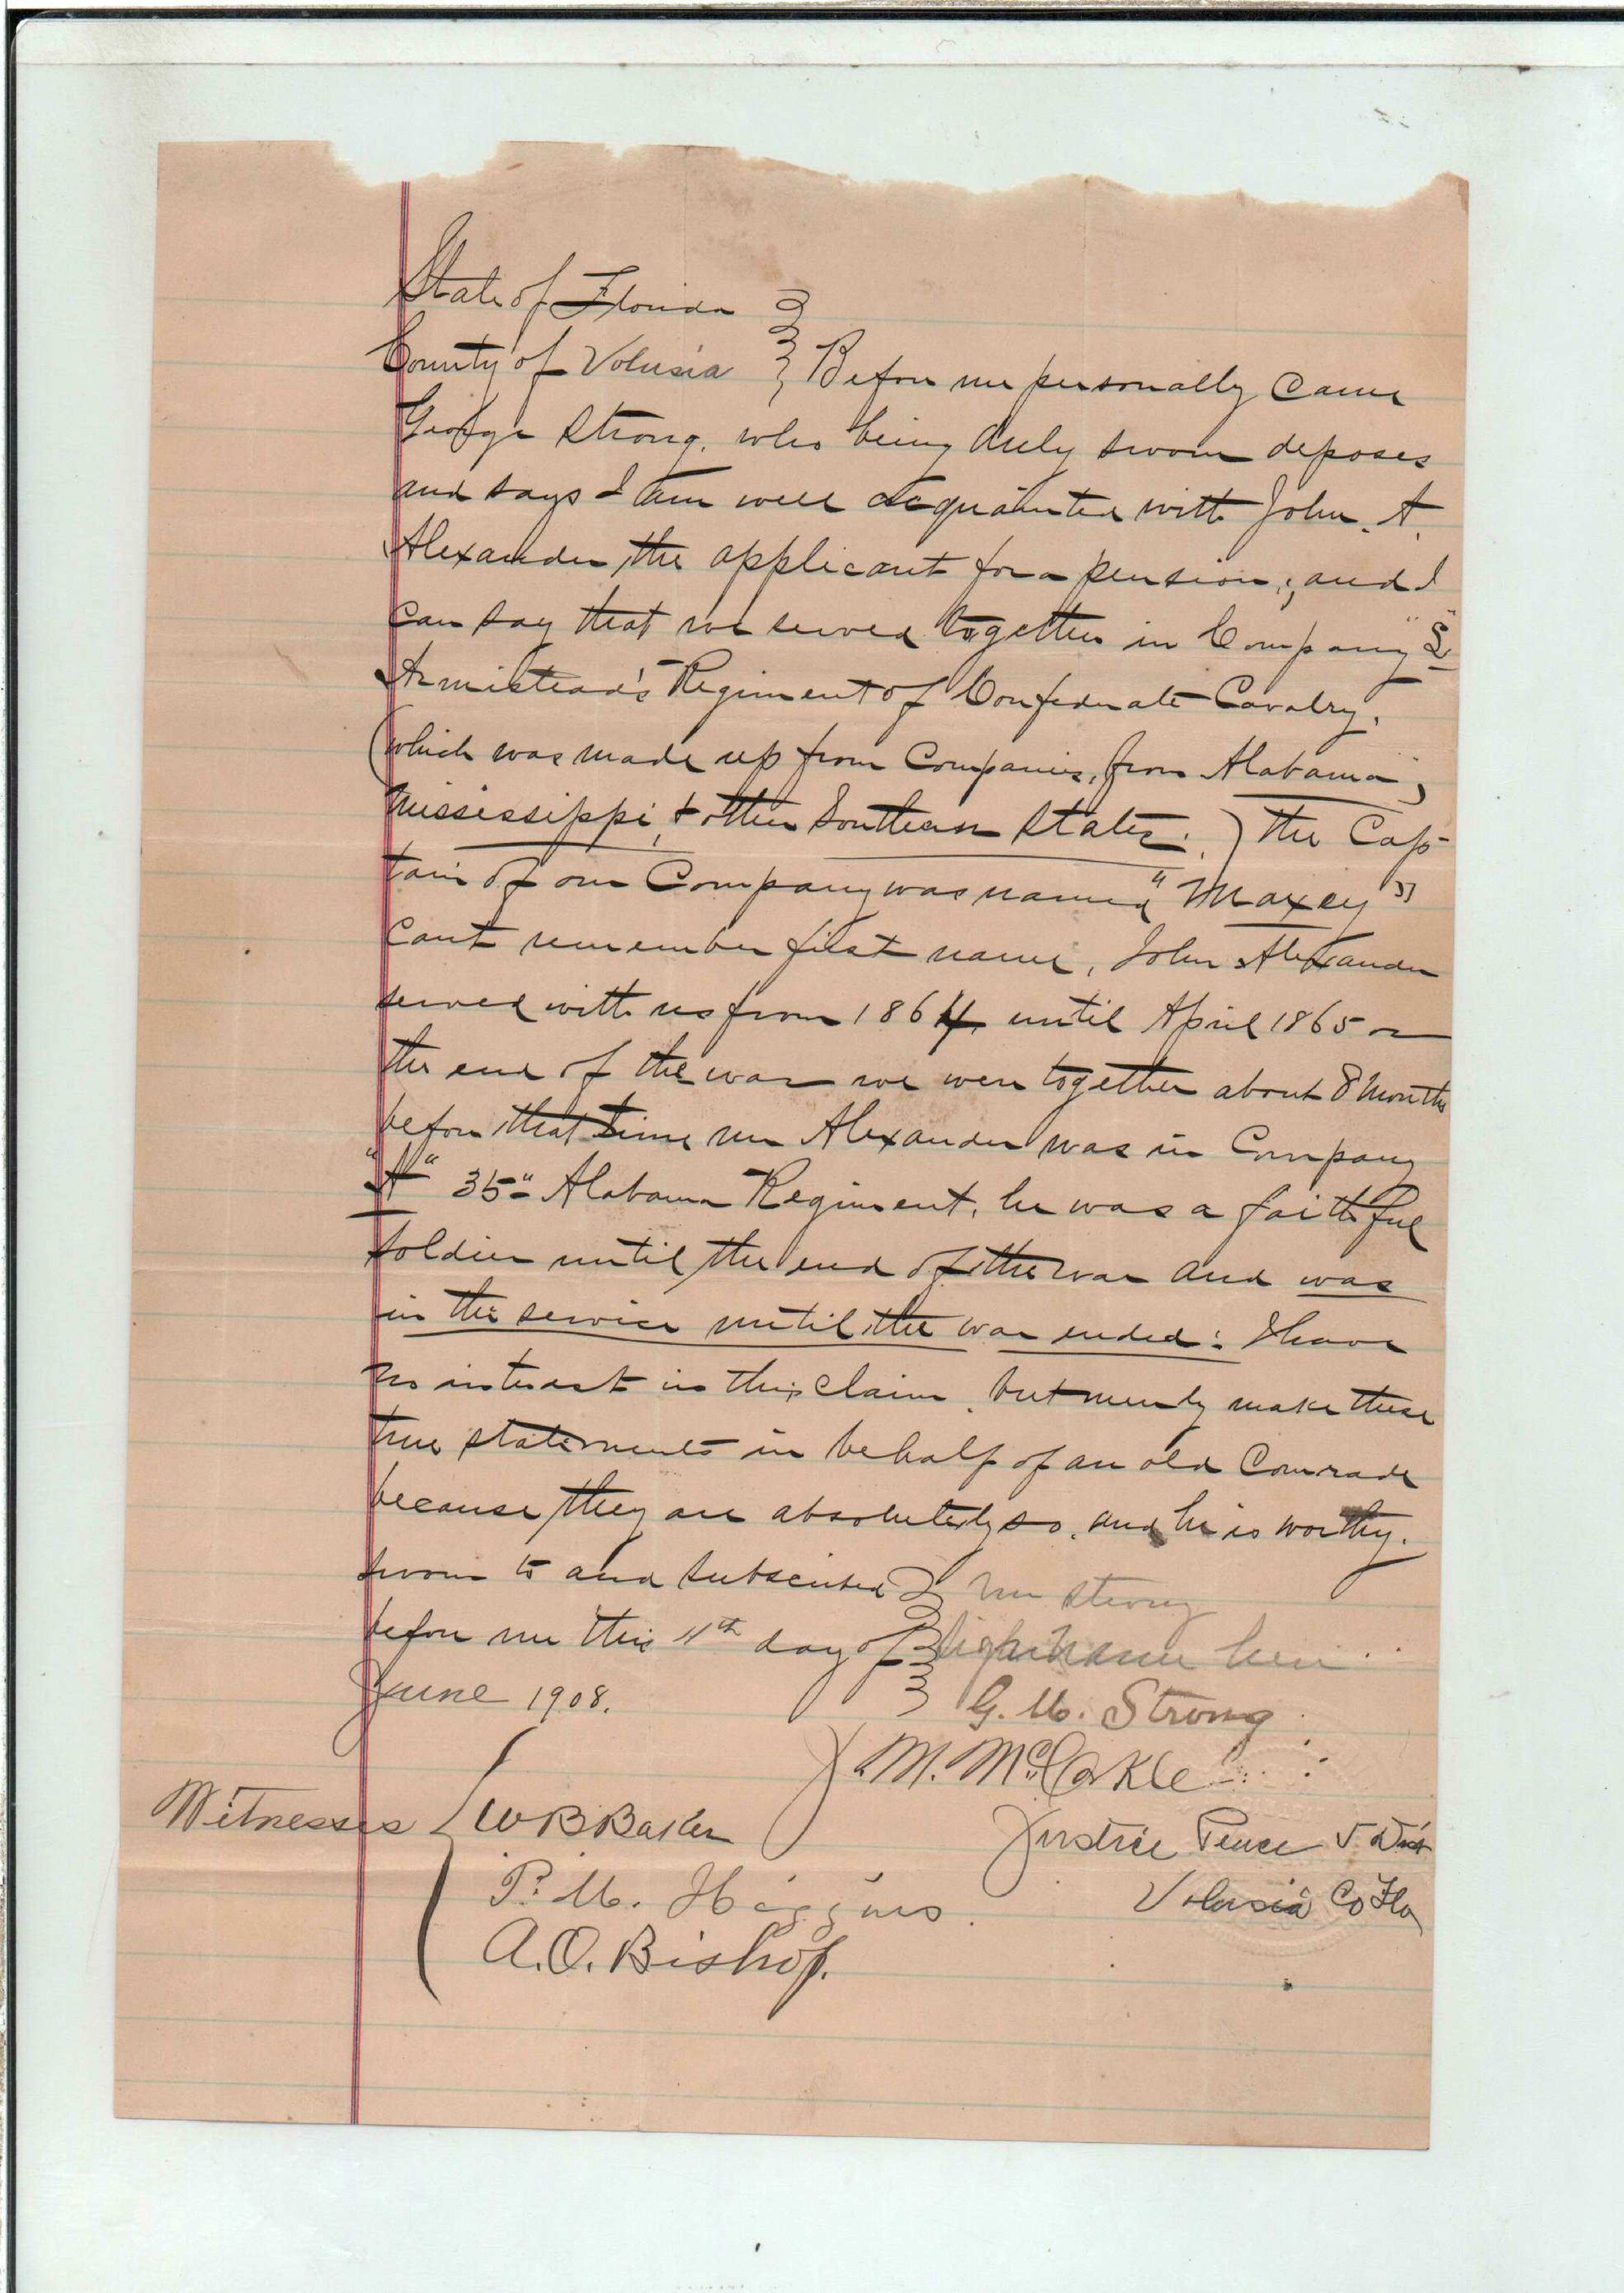 State of Florida
County of Volusia } Before me personally came
George Strong. who being duly sworn deposes
and says I am well acquainted with John. A.
Alexander the applicant for a pension; and I
can say that we served together in Company "
Armistead's Regiment of Confederate Cavalry.
(which was made up from Companies, from Alabama,
Mississippi, & other Southern States.) The Cap-
tain of our Company was named "Maxey"
cant remember first name, John Alexander
served with us from 1864 until April 1865 or
the end of the war we were together about 8 months
before that time mr Alexander was in Company
"A" 35" Alabama Regiment, he was a faithful
soldier until the end of the war and was
in the service until the war ended: I have
no interest in this claim. but merely make these
true statements in behalf of an old Comrade
because they are absolutely so. and he is worthy.
sworn to and subscribed } Mr Strong
before me this 11th day of } sign name here
June 1908. } G. M. Strong
M. McCorkle
Witnesses { W B Baker
Justice Peace 5 Dist
P. M. Higgins.
Volusia Co Fla
A. O. Bishop.